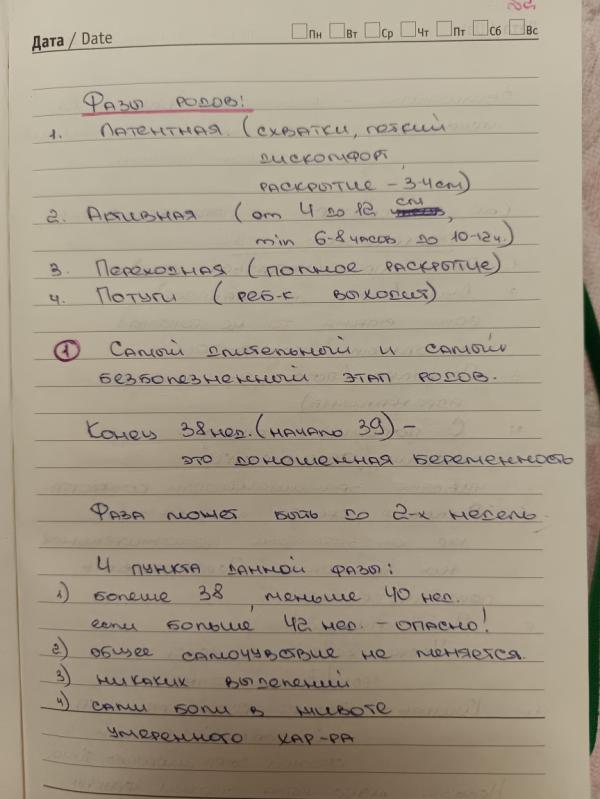 Дата / Date Пн Вт Ср Чт Пт Сб Вс
Фазы родов:
1. Латентная (схватки, легкий
дискомфорт,
раскрытие - 3-4 см)
2. Активная (от 4 до 12 см,
min 6-8 часов до 10-12ч.)
3. Переходная (полное раскрытие)
4. Потуги (реб-к выходит)
1 Самый длительный и самый
безболезненный этап родов.
Конец 38 нед. (начало 39) -
это доношенная беременность
Фаза может быть до 2-х недель.
4 пункта данной фазы:
1) больше 38, меньше 40 нед.
если больше 42 нед. - опасно!
2) общее самочувствие не меняется.
3) никаких выделений
4) сами боли в животе
умеренного хар-ра